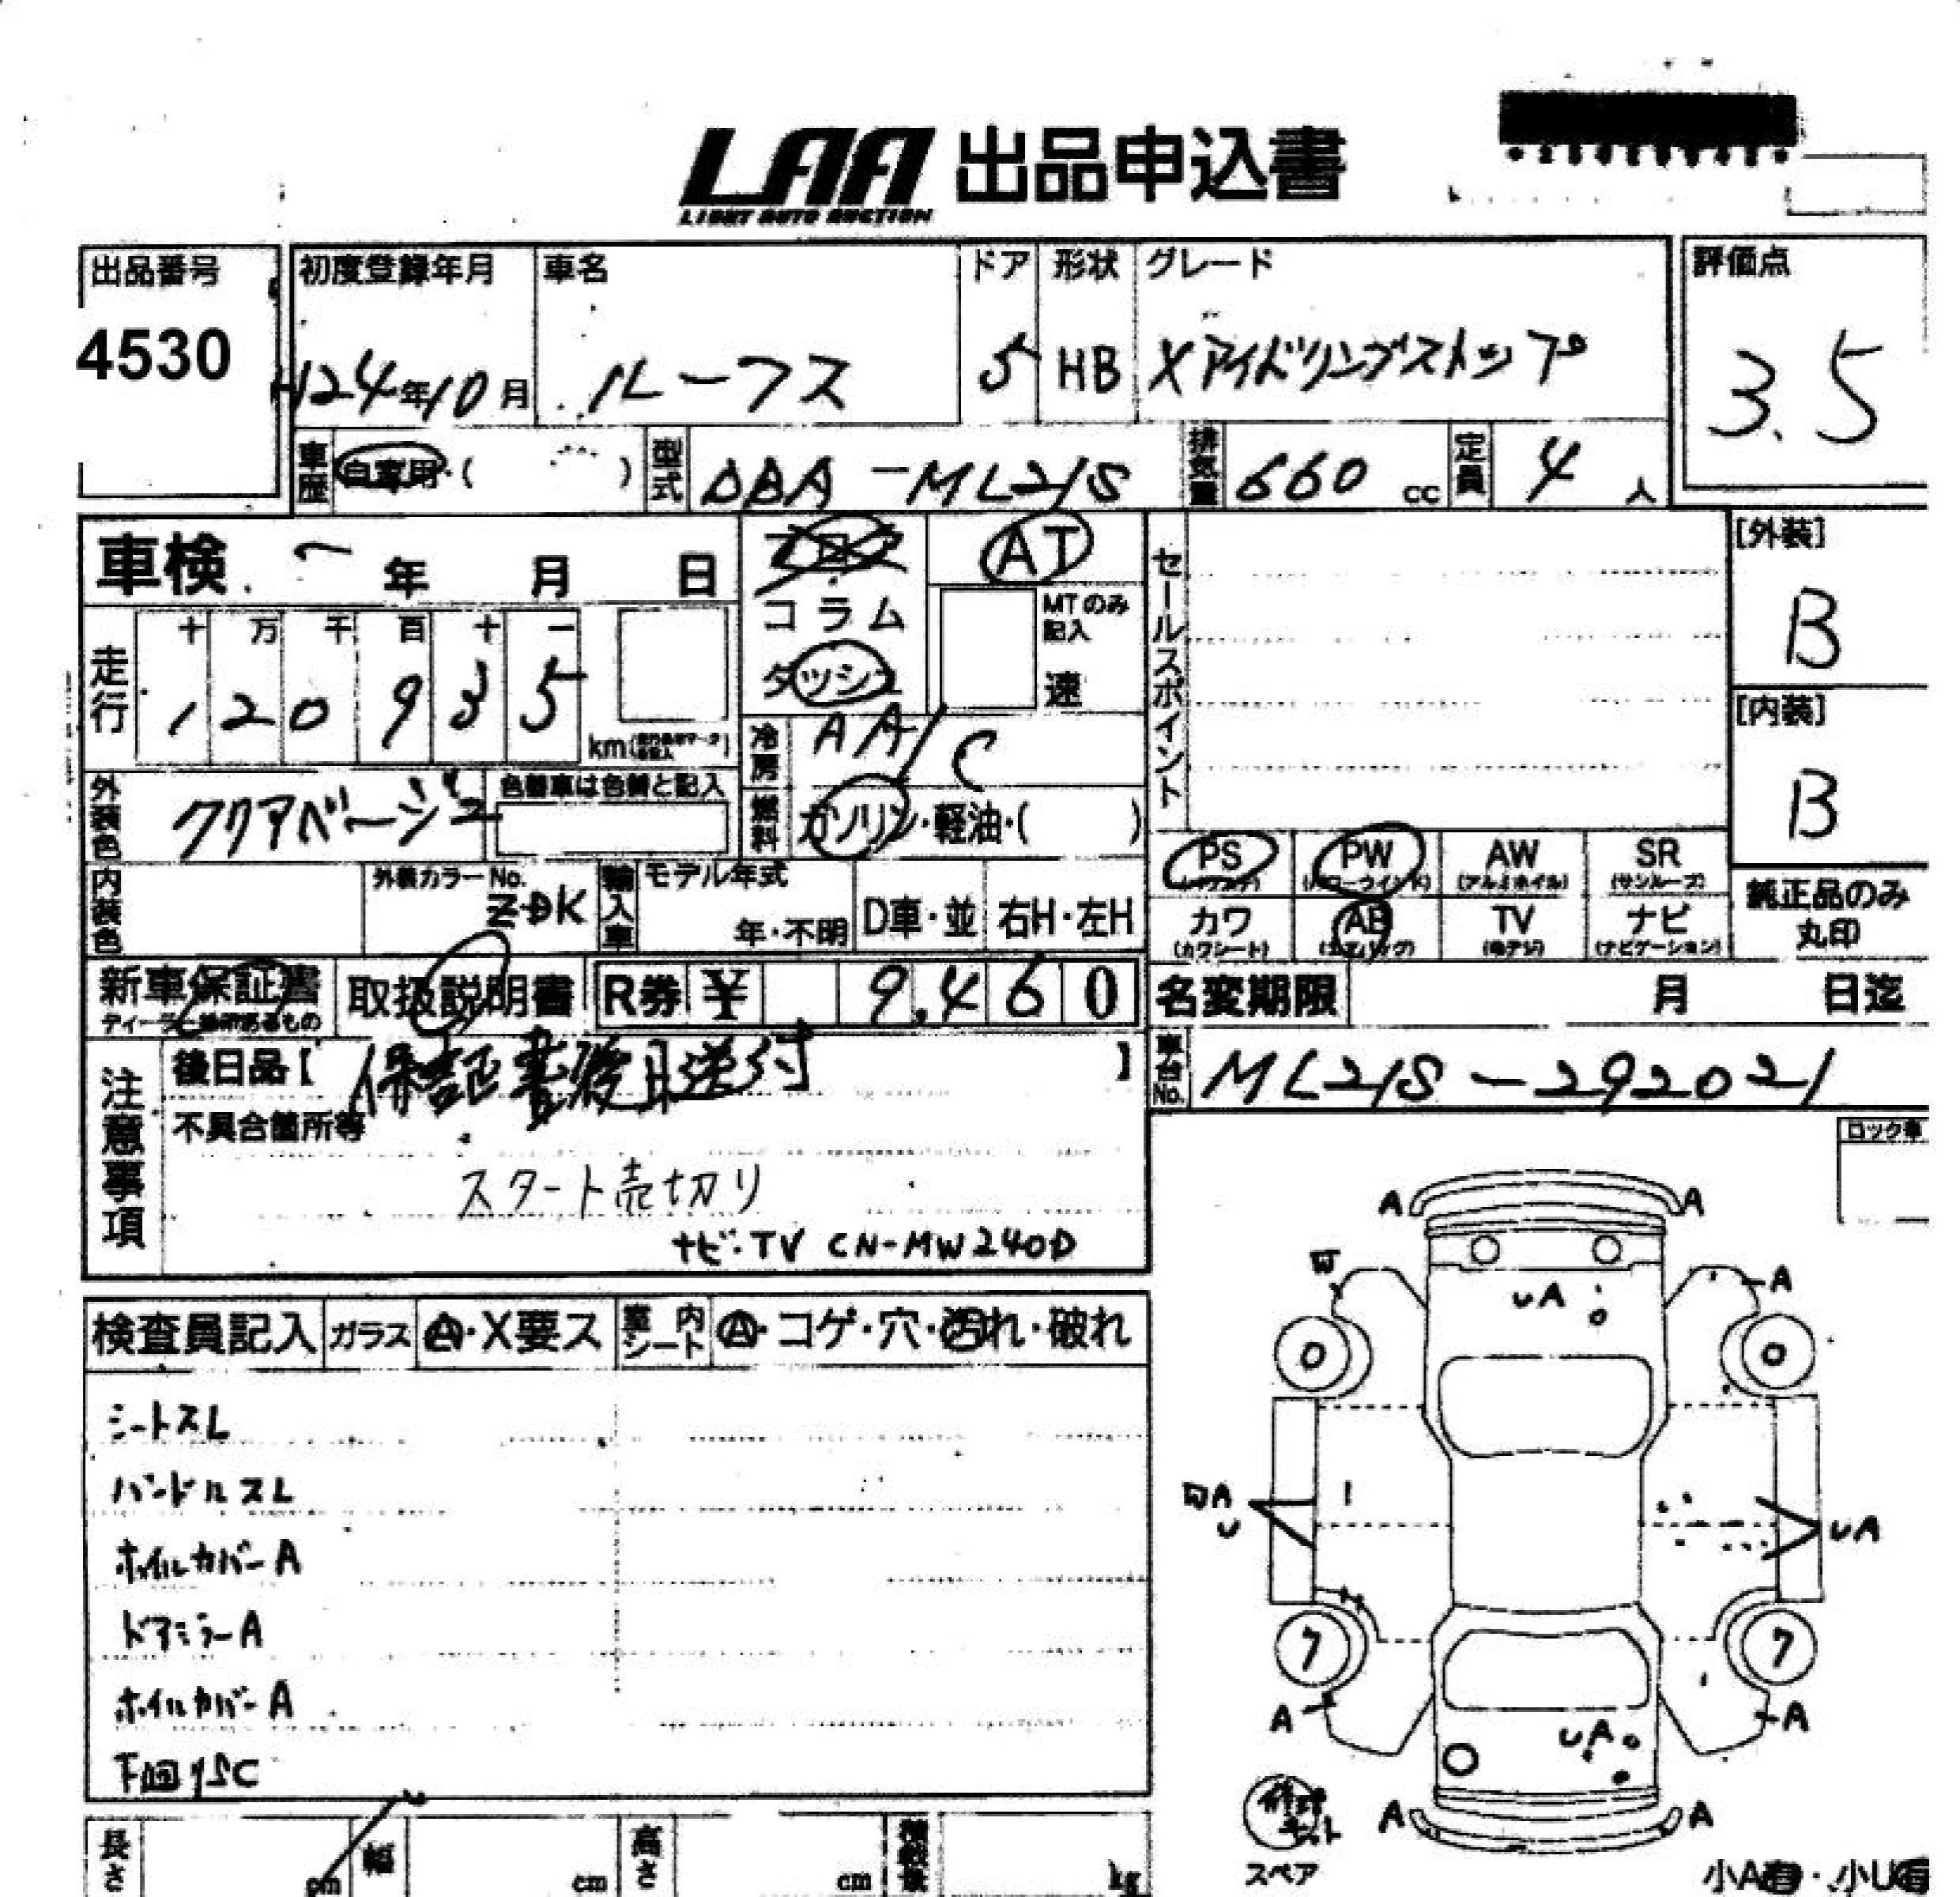 LAA 出品申込書
LIGHT AUTO AUCTION
出品番号 初度登録年月 車名 ドア 形状 グレード 評価点
4530 H24年10月 ルークス 5 HB Xアイドリングストップ 3.5
車歴 自家用・( ) 型式 DBA-ML21S 排気量 660 cc 定員 4 人
車検 年 月 日 フロア AT セールスポイント [外装]
コラム MTのみ記入 B
ダッシュ 速
走行 十 万 千 百 十 一
1 2 0 9 3 5 km
[内装]
B
冷房 AA/C
外装色 クリアベージュ 色替車は色替と記入 燃料 ガソリン・軽油・( )
PS PW AW SR
(パワステ) (パワーウインド) (アルミホイル) (サンルーフ)
カワ AB TV ナビ
(カワシート) (エアバッグ) (地デジ) (ナビゲーション)
純正品のみ
丸印
内装色 外装カラーNo. ZDK 輸入車 モデル年式 年・不明 D車・並 右H・左H
新車保証書 取扱説明書 R券 ¥ 9,460 名変期限 月 日迄
ディーラー
注意事項 後日品[ 保証書後日送付 ] 車台No. ML21S-292021
不具合箇所等 ロック車
スタート売切り
ナビ・TV CN-MW240D
A A
A
UA
0 0
A
U
UA
7 7
A A
UA
A A
検査員記入 ガラス A・X要ス 室内シート A・コゲ・穴・汚れ・破れ
シートスレ
ハンドルスレ
ホイルカバーA
ドアミラーA
ホイルカバーA
下回りSC
修理キット
スペア
小A有・小U有
長さ cm 幅 cm 高さ cm kg